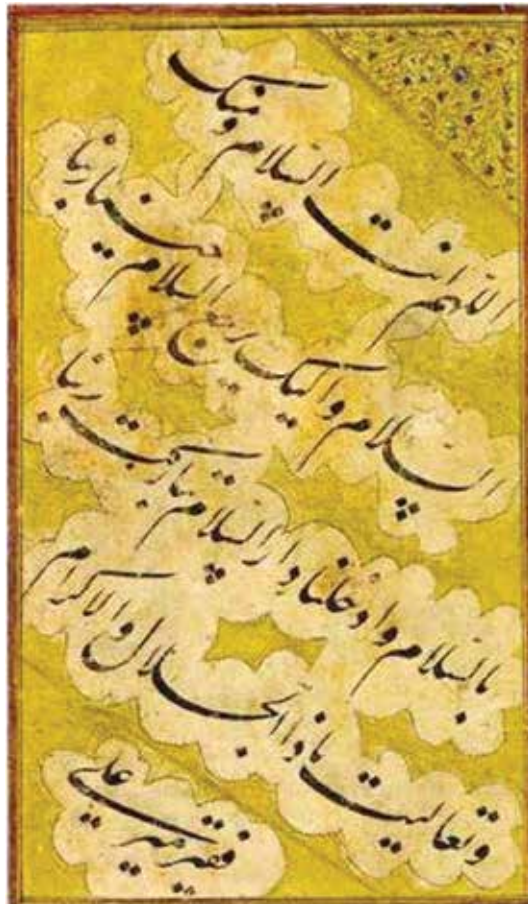 اللهم انت السلام ومنك
السلام واليك يرجع السلام حينا ربنا
بالسلام وادخلنا دار السلام تباركت ربنا
وتعاليت يا ذا الجلال والاكرام
فقير مير علي